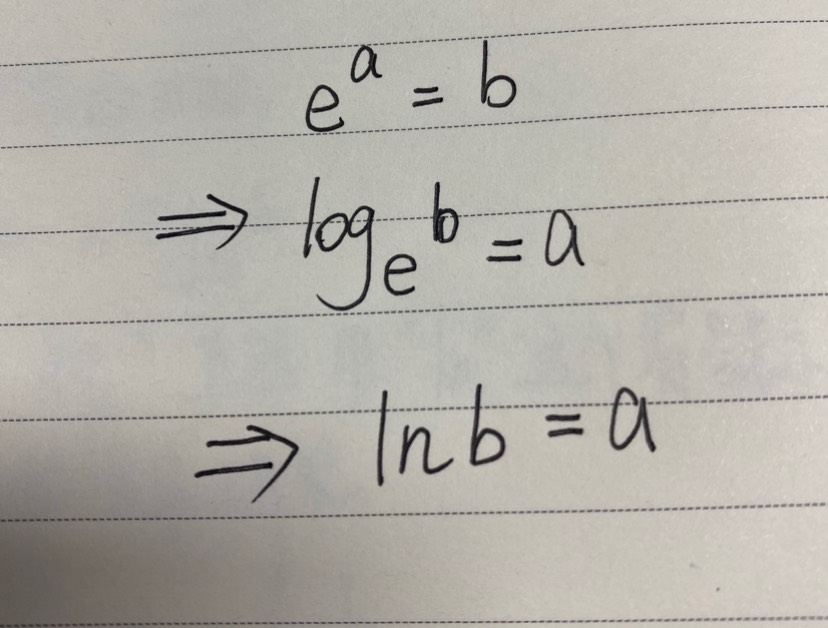 e^a = b
⇒ log_e b = a
⇒ ln b = a